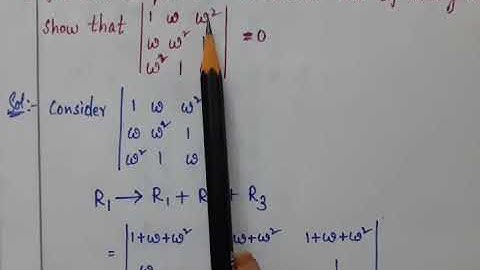 show that | 1 ω ω² |
| ω ω² | = 0
| ω² 1 |
Sol:- Consider | 1 ω ω² |
| ω ω² 1 |
| ω² 1 ω |
R₁ → R₁ + R + R₃
= | 1+ω+ω² ω+ω² 1+ω+ω² |